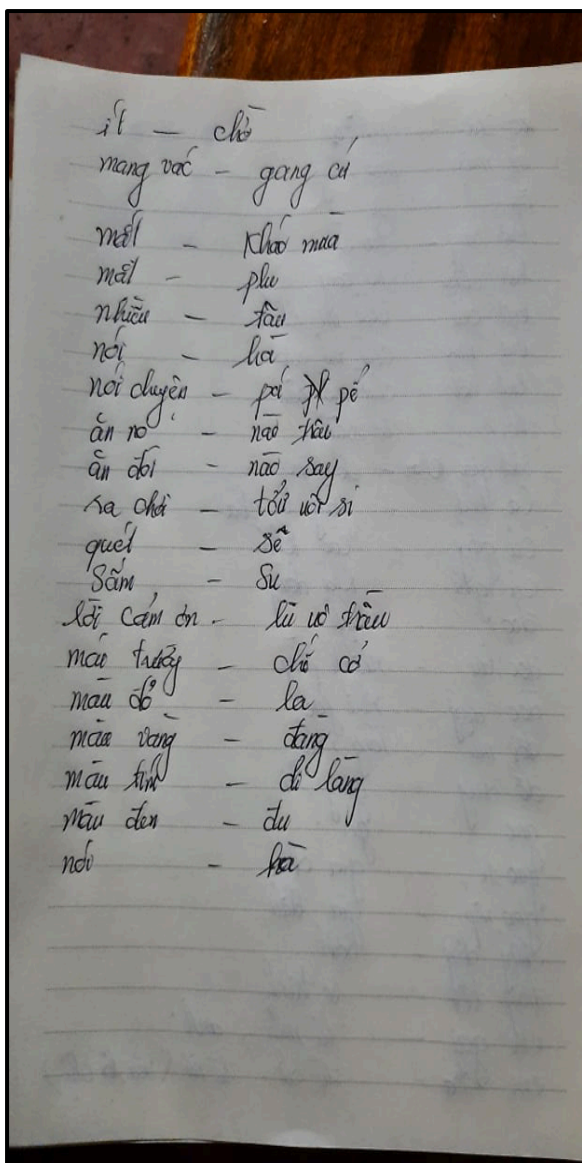 ít — chờ
mang vác - gang cứ
mất - Kháo maa
mất - plu
nhiều - tâu
nói - hà
nói chuyện - pá pế
ăn no - nao thâu
ăn đói - nào say
ra chơi - uôi si
quét - sễ
Sấm - Su
lời cảm ơn - lù uô thầu
màu trắng - chố cơ
màu đỏ - la
màu vàng - đang
màu tím - di lang
màu đen - đu
nói - hà